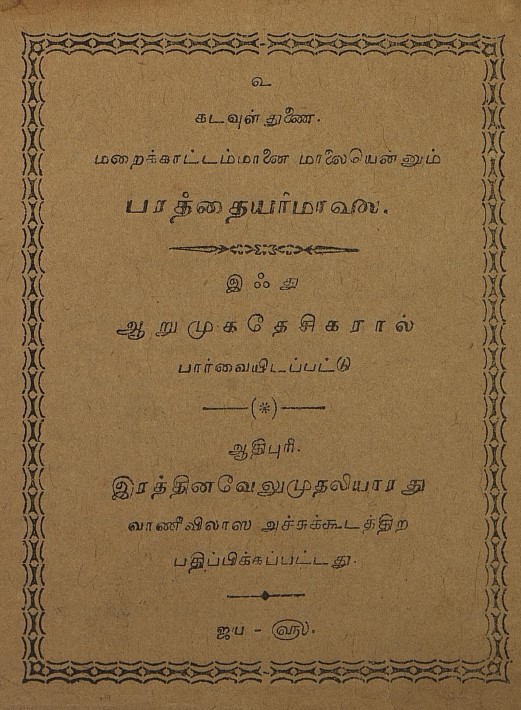 உ
கடவுள் துணை.
மறைக்காட்டம்மானை மாலையென்னும்
பரத்தையர்மாலை.
இஃது
ஆறுமுகதேசிகரால்
பார்வையிடப்பட்டு
ஆதிபுரி.
இரத்தினவேலுமுதலியாரது
வாணீவிலாஸ அச்சுக்கூடத்திற்
பதிப்பிக்கப்பட்டது.
ஜய -